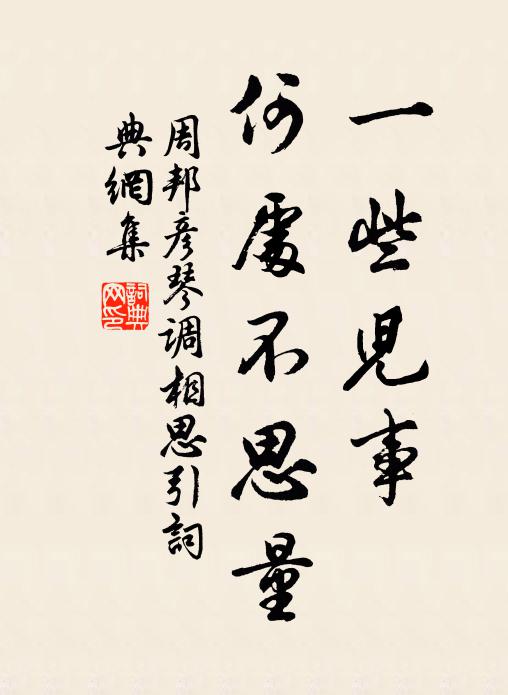 一些兒事
何處不思量
周邦彥琴調相思引詞
典網集
詞典
网印